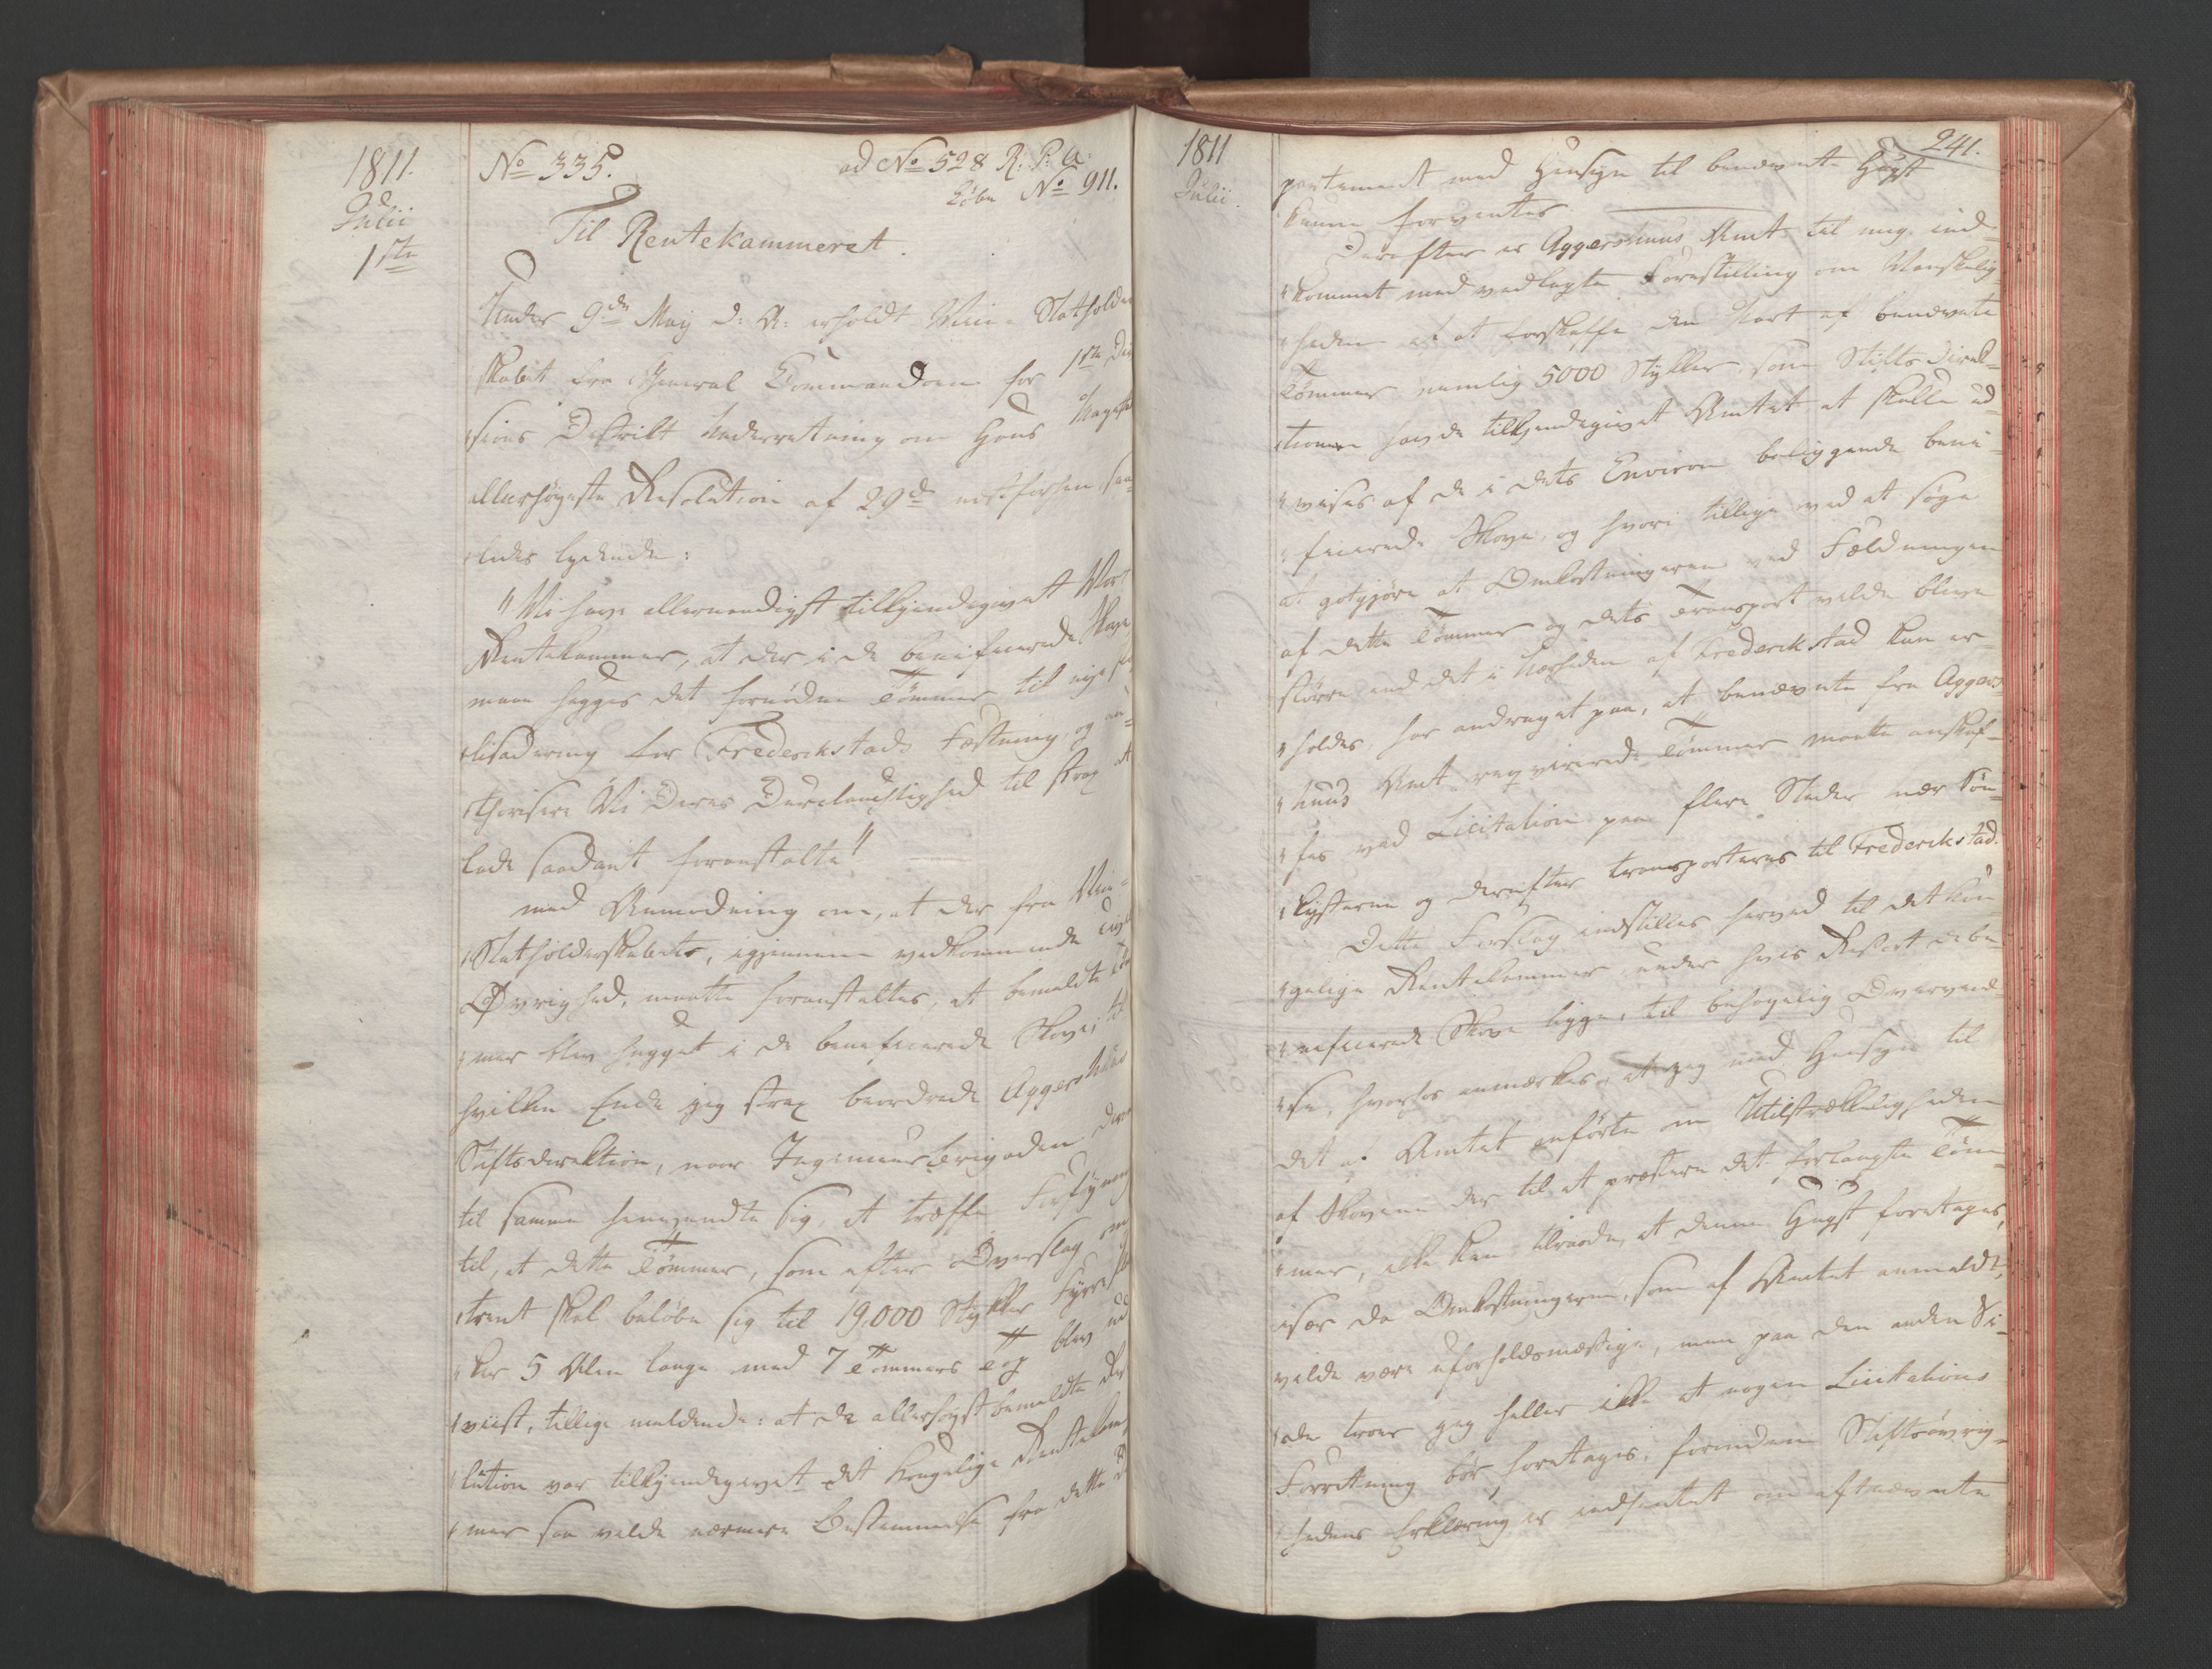 1811.
Julii
1ste
No 335.
ad No 528 R: P: A:
Løbe No 911.
Til Rentekammeret.
Under 9de May d: A: erholdt Vice- Statholder
skabet fra General Commandoen for 1ste Divi
sions District Underretning om Hans Majestæts
allerhøyeste Resolution af 29de næstforhen, saa-
ledes lydende:
"Vi have allernaadigst tilkjendegivet Vort
Rentekammer, at der i de beneficerede Skove
maae hugges det fornødne Tømmer til nye Pa
lisadering for Frederikstads Fæstning, og au-
thorisere Vi Deres Durchlauchtighed til strax at
lade saadant foranstalte"
med Anmodning om, at der fra Vice-
Statholderskabets, igjennem vedkommende Civil
Øvrighed, maatte foranstaltes, at bemeldte Tøm
mer blev hugget i de beneficerede Skove; til
hvilken Ende jeg strax beordrede Aggershuus
Stiftsdirektion, naar Ingenieurbrigaden der
til samme henvendte sig, at træffe Føyning
til, at dette Tømmer, som efter Overslag om
trent skal beløbe sig til 19,000 Stykker Fyrre Stok
ker 5 Alen lange med 7 Tommers Top blev ud
viist, tillige meldende: at da allerhøystbemeldte Reso
lution var tilkjendegivet det kongelige Rentekam
mer saa vilde nærmere Bestemmelse fra dette De
1811
Julii.
241.
partement med Hensyn til benævnte Hugst
kunne forventes.
Derefter er Aggershuus Amt til mig ind-
kommet med vedlagte Forestilling om Vanskelig-
heden af at forskaffe den Part af benævnte
Tømmer nemlig 5000 Stykker, som Stifts Direk-
tionen havde tilkjendegivet Amtet at skulle ud-
vises af de i dets Environ beliggende bene-
ficerede Skove, og hvori tillige ved at søge
at godtgjøre at Omkostningerne ved Fældningen
af dette Tømmer og dets Transport vilde blive
større end det i Nærheden af Frederikstad kan er-
holdes, har andraget paa, at benævnte fra Aggers-
huus Amt reqvirerede Tømmer maatte anskaf-
fes ved Licitation paa flere Steder nær Søe-
kysterne og derefter transporteres til Frederikstad.
Dette Forslag indstilles herved til det kon-
gelige Rentekammer under hvis Resort de be-
neficerede Skove ligge, til behagelig Overveiel-
se, hvorhos anmærkes, at jeg med Hensyn til
det af Amtet anførte om Utilstrækkeligheden
af Skovene der til at præstere det forlangte Tøm-
mer, ikke kan tilraade, at denne Hugst foretages,
især da Omkostningerne, som af Amtet anmeldt,
vilde være uforholdsmæssige, men paa den anden Si-
de troer jeg heller ikke at nogen Licitations
Forretning bør foretages, forinden Stiftsøvrig-
hedens Erklæring er indhentet om oftnævnte